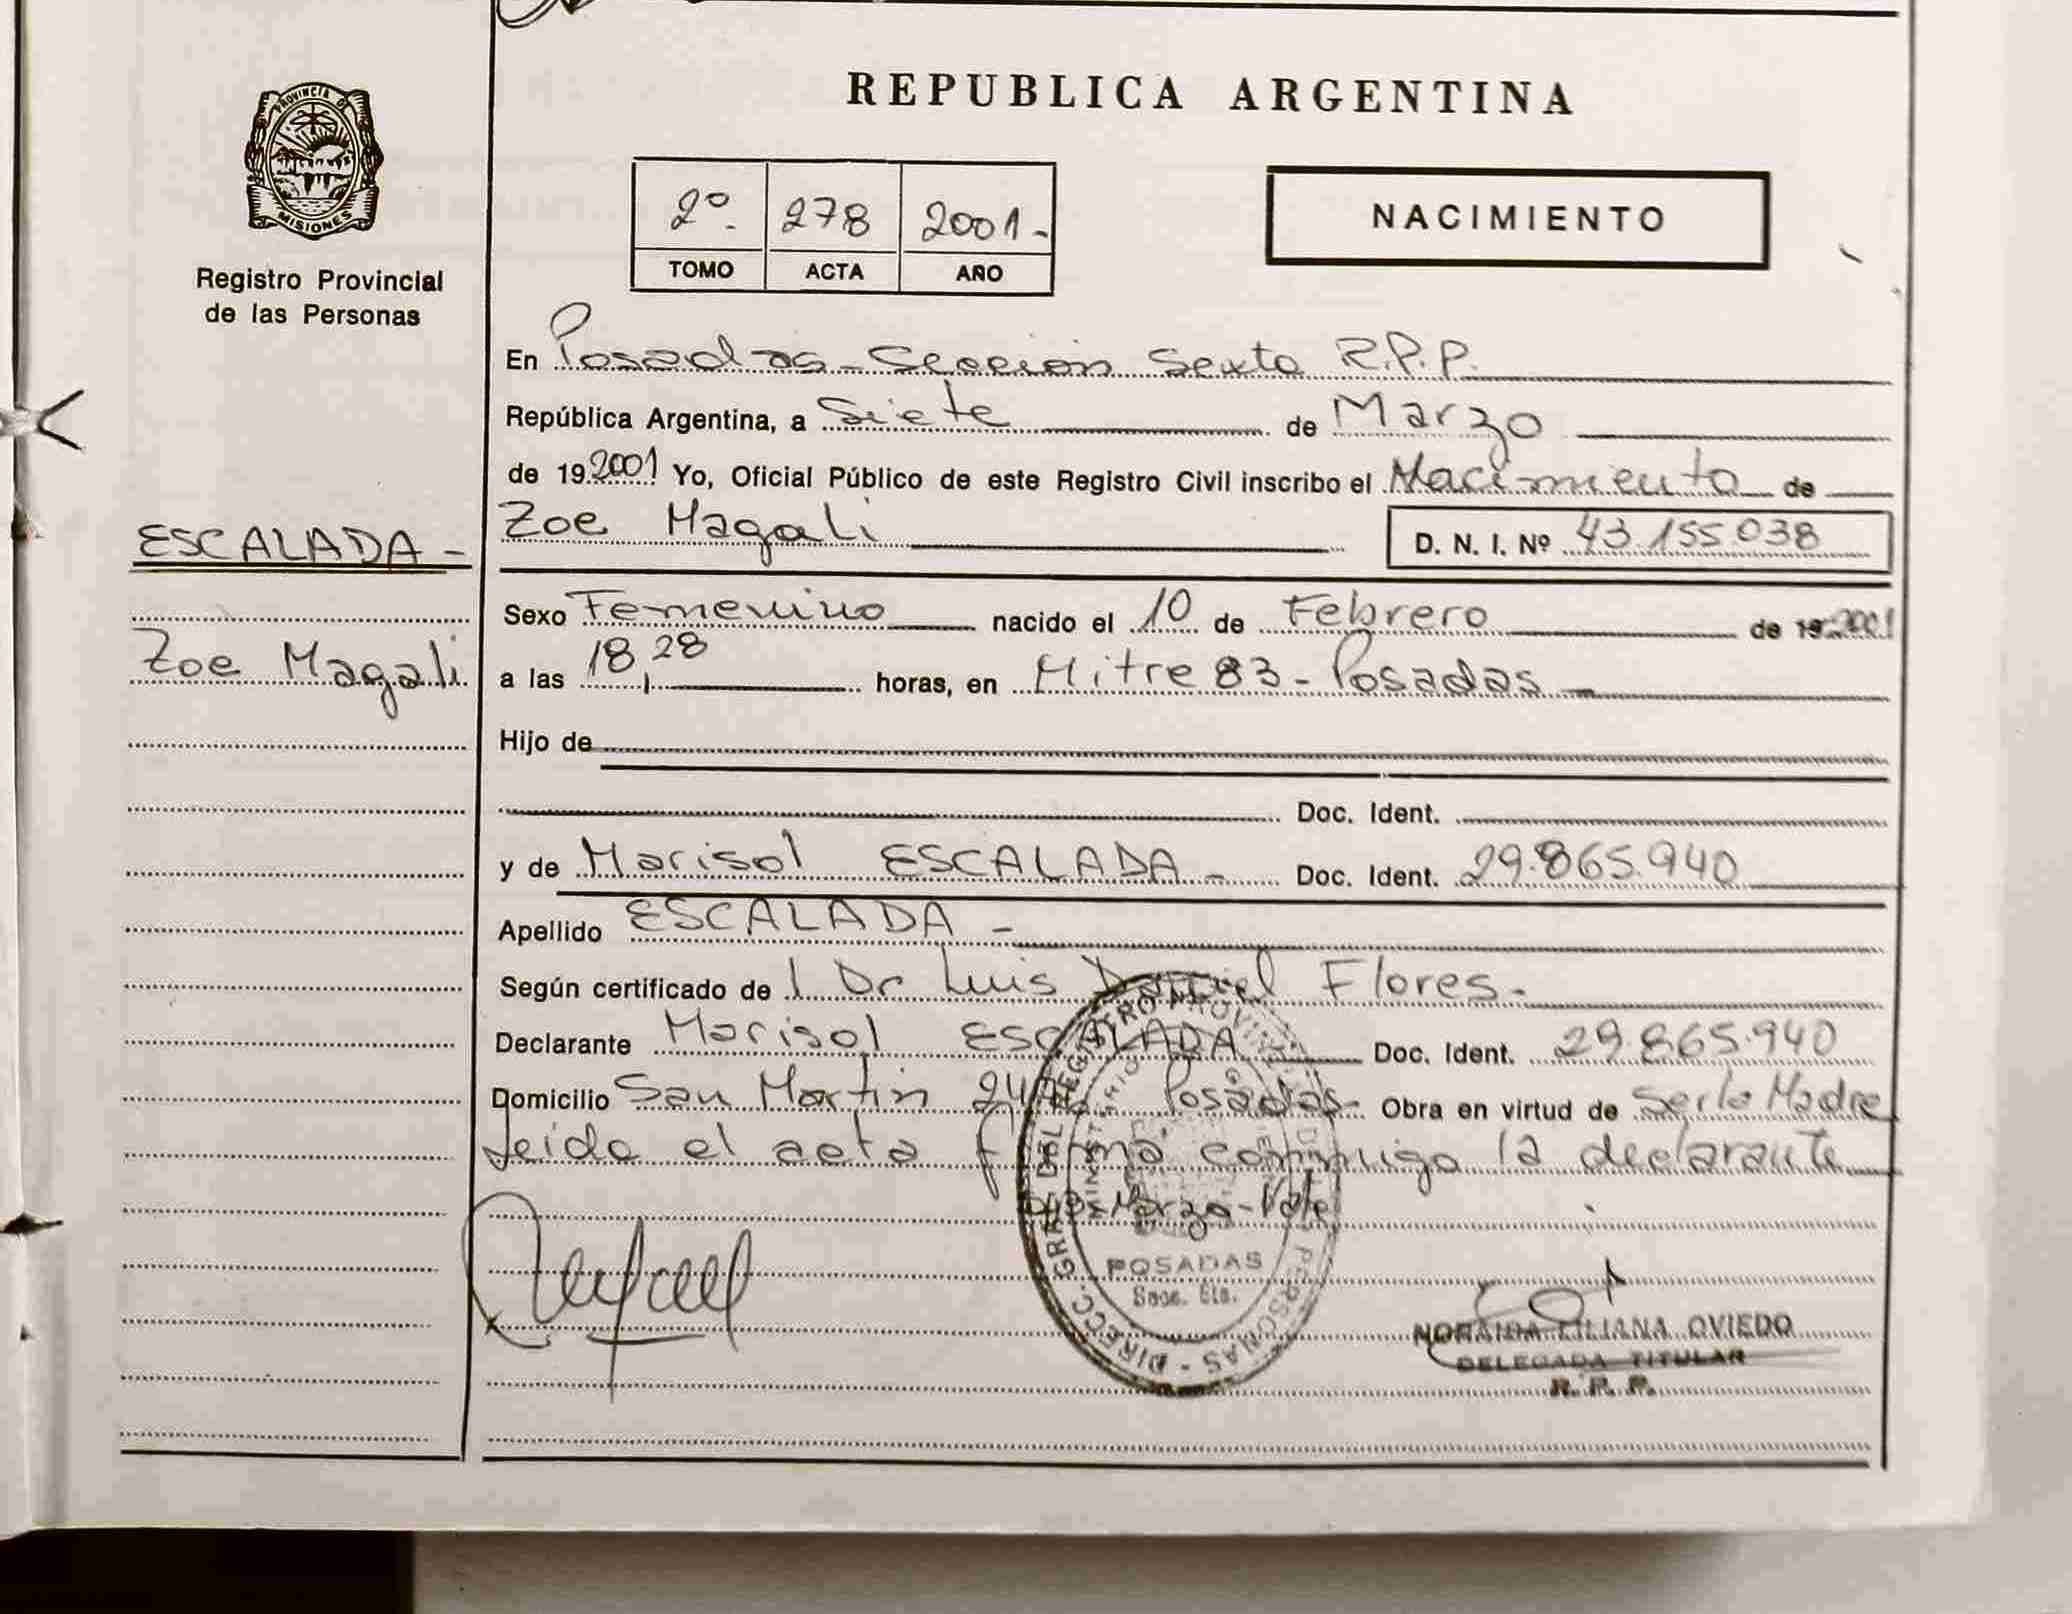 REPUBLICA ARGENTINA
PROVINCIA DE
MISIONES
Registro Provincial
de las Personas
2º. 278 2001.-
TOMO ACTA AÑO
NACIMIENTO
En Posadas - Seccion Sexta R.P.P.
República Argentina, a Siete de Marzo
de 19 2001 Yo, Oficial Público de este Registro Civil inscribo el Nacimiento de
Zoe Magali D. N. I. Nº 43.155.038
ESCALADA -
Zoe Magali
Sexo Femenino nacido el 10 de Febrero de 19 2001
a las 18,28 horas, en Mitre 83 - Posadas
Hijo de
Doc. Ident.
y de Marisol ESCALADA - Doc. Ident. 29.865.940
Apellido ESCALADA -
Según certificado del Dr Luis Daniel Flores.-
Declarante Marisol ESCALADA Doc. Ident. 29.865.940
Domicilio San Martin Posadas - Obra en virtud de Ser la Madre
Leida el acta firma conmigo la declarante
Marzo - Vale
POSADAS
Secc. 6ta.
NORAIDA LILIANA OVIEDO
DELEGADA TITULAR
R. P. P.